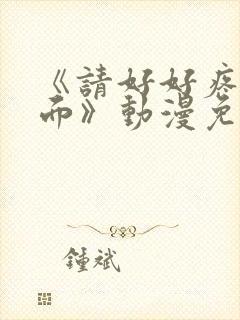 《請好好疼
而》動漫免
鍾斌